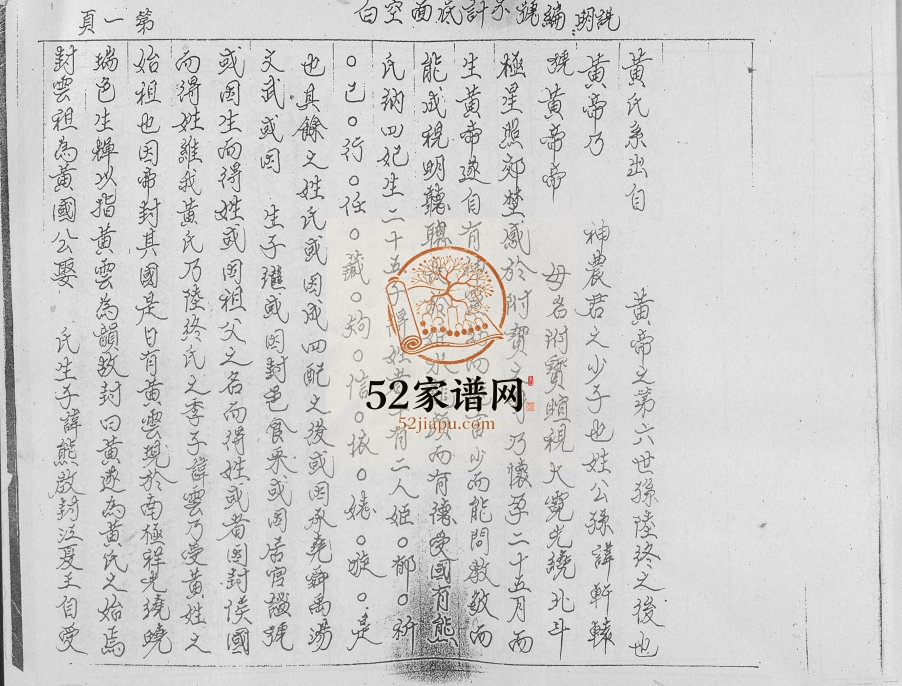 說明編號不計底面空白
第一頁
黃氏系出自 黃帝之第六世孫陸終之後也
黃帝乃 神農君之少子也姓公孫諱軒轅
號黃帝帝 母名附寶暄視大霓光繞北斗
極星照郊埜感於附寶 乃懷孕二十五月而
生黃帝遂自有 而 百少而能問教敏而
能成視明聽聰 而有德受國有熊
氏納四妃生二十五子 姓 有二人姬。郁。祈
。已。行。任。藏。狗。佶。依。姥。旋。是
也其餘之姓氏或因成四配之後或因承堯舜禹湯
文武或因 生子繼或因封邑食采或因居官謚號
或因生而得姓或因祖父之名而得姓或者因封侯國
而得姓維我黃氏乃陸終氏之季子諱雲乃受黃姓之
始祖也因帝封其國是日有黃雲現於南極祥光繞曉
瑞色生輝以指黃雲為韻故封曰黃遂為黃氏之始焉
封雲祖為黃國公娶 氏生子諱熊啟封江夏王自受
52家谱网
52jiapu.com